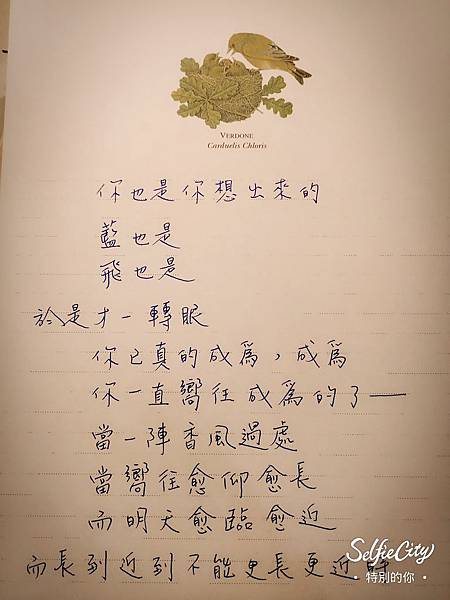 VERDONE
Carduelis Chloris
你也是你想出來的
藍也是
飛也是
於是才一轉眼
你已真的成為，成為
你一直嚮往成為的了——
當一陣香風過處
當嚮往愈仰愈長
而明天愈臨愈近
而長到近到不能更長更近時
SelfieCity
· 特別的你 ·